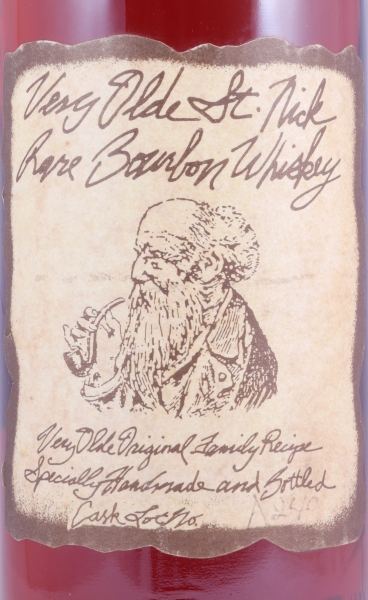 Very Olde St. Nick
Rare Bourbon Whiskey
Very Olde Original Family Recipe
Specially Handmade and Bottled
Cask Lot No.